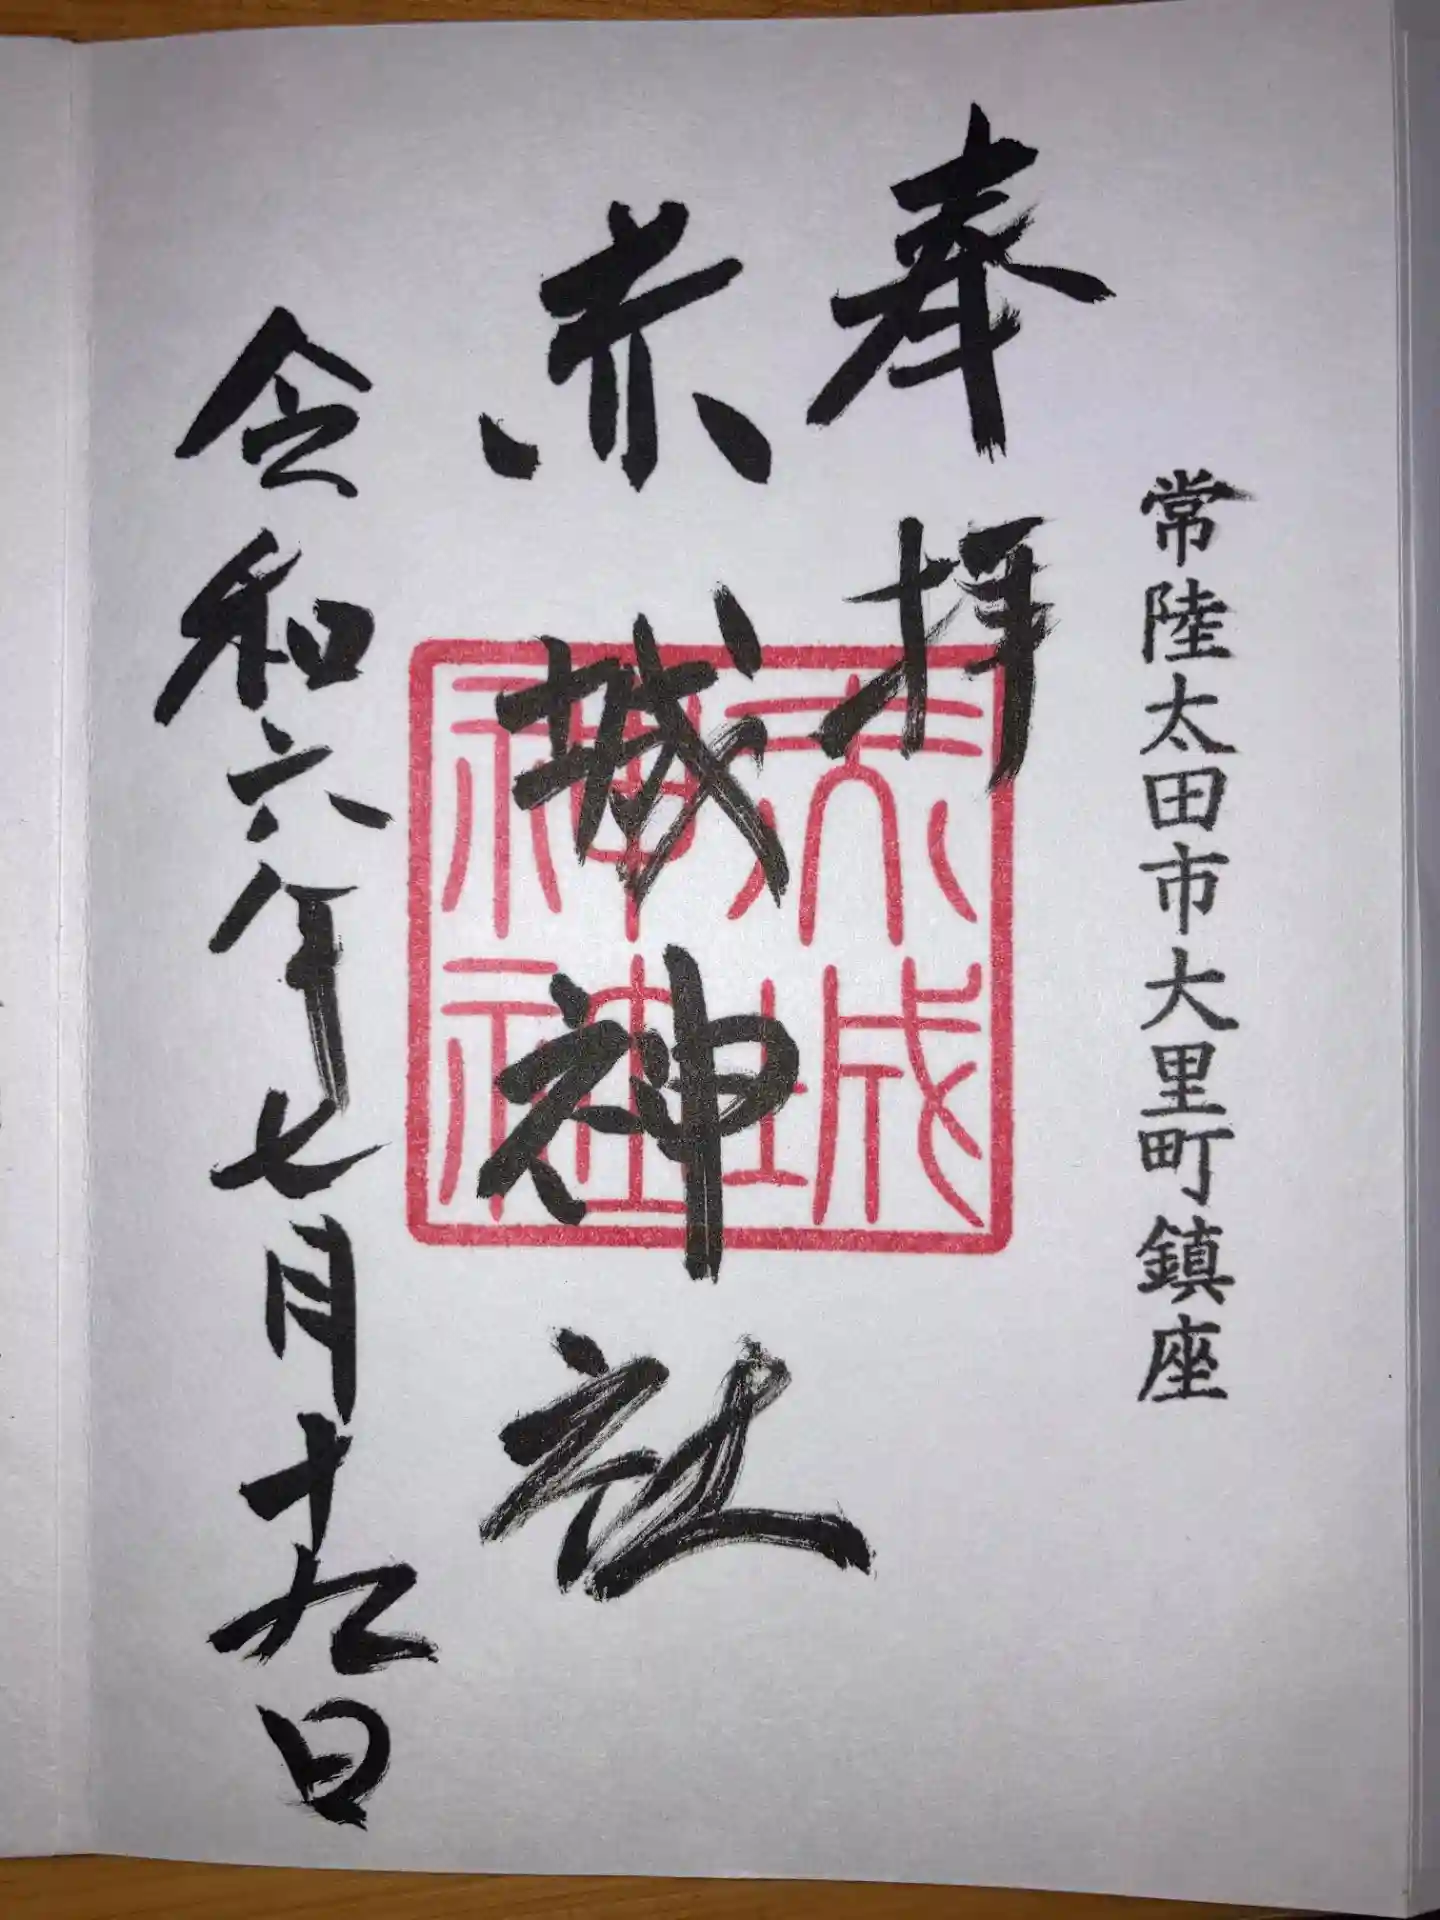 常陸太田市大里町鎮座
奉拝
赤城神社
令和六年七月十九日
赤城
神社